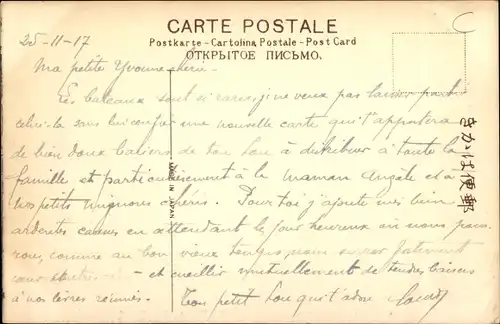 CARTE POSTALE
Postkarte - Cartolina Postale - Post Card
ОТКРЫТОЕ ПИСЬМО.
25-11-17
Ma petite Yvonne chérie -
Les bateaux sont si rares, je ne veux pas laisser partir
celui-là sans lui confier une nouvelle carte qui t'apportera
de bien doux baisers de ton Lou à distribuer à toute la
famille et particulièrement à la Maman Angèle et à
nos petits mignons chéris. Pour toi j'ajoute mes bien
ardentes en attendant le jour heureux où nous pour-
rons, comme au bon vieux temps, nous
cœur - et cueillir mutuellement de tendres baisers
à nos lèvres réunies. Ton petit Lou qui t'adore
MADE IN JAPAN
きかは便郵